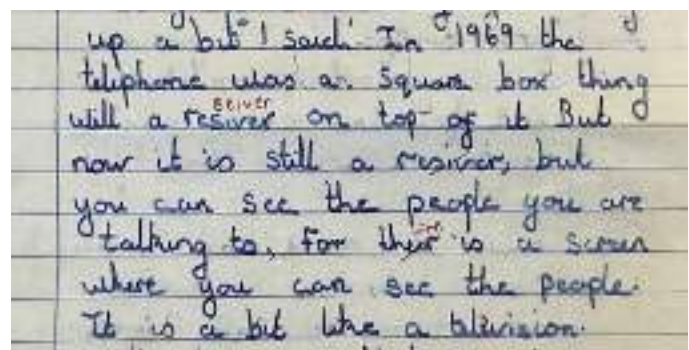 up a bit I said. In 1969 the
telephone was a square box thing
will a resiver on top of it But
now it is still a resiver, but
you can see the people you are
talking to, for their is a screen
where you can see the people.
It is a bit like a television.